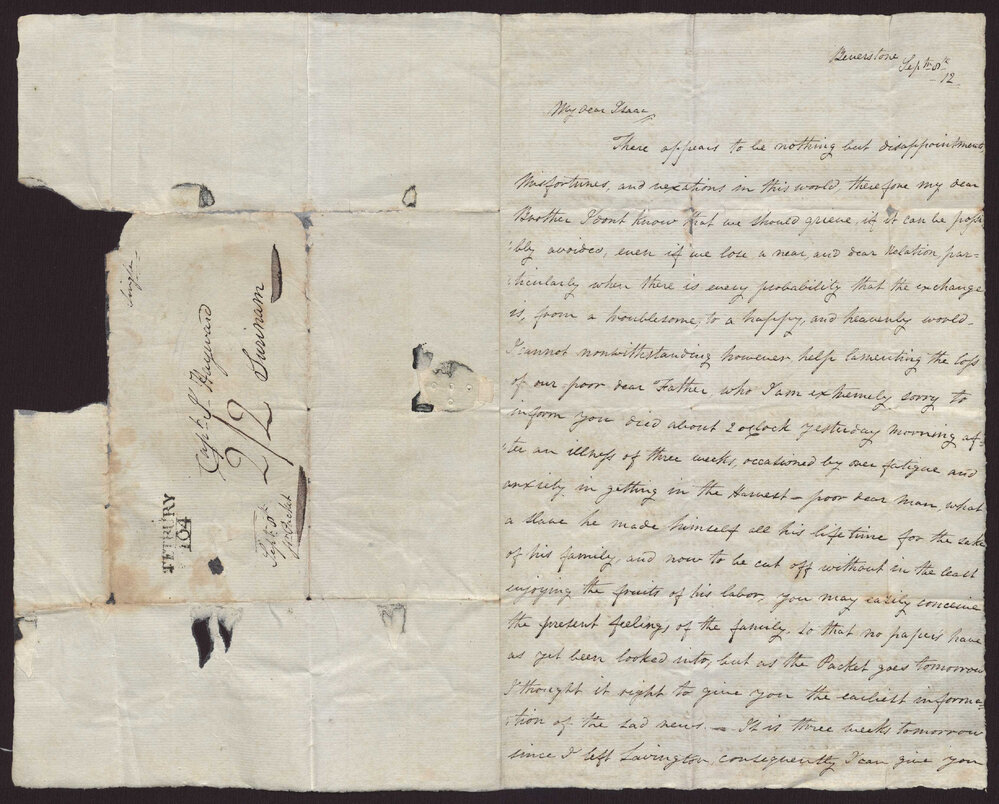 Single
Capt. I. Hayward
2/2 Surinam
Sept 8th
TETBURY
104
Beverstone
Septr 8th
12
My dear Isaac
There appears to be nothing but disappointments,
Misfortunes, and vexations in this world, therefore my dear
Brother I dont know that we should grieve, if it can be possi
bly avoided, even if we lose a near, and dear Relation par=
ticularly when there is every probability that the exchange
is, from a troublesome, to a happy, and heavenly world.
I cannot nonwithstanding however help lamenting the loss
of our poor dear Father, who I am extremely sorry to
inform you died about 2 oclock yesterday morning af=
ter an illness of three weeks, occasioned by over fatigue and
anxiety, in getting in the Harvest - poor dear man, what
a slave he made himself all his lifetime for the sake
of his family, and now to be cut off without in the least
enjoying the fruits of his labor, you may easily conceive
the present feelings of the family, so that no papers have
as yet been looked into, but as the Packet goes tomorrow
I thought it right to give you the earliest informa=
tion of the sad news. - It is three weeks tomorrow
since I left Lavington, consequently I can give you